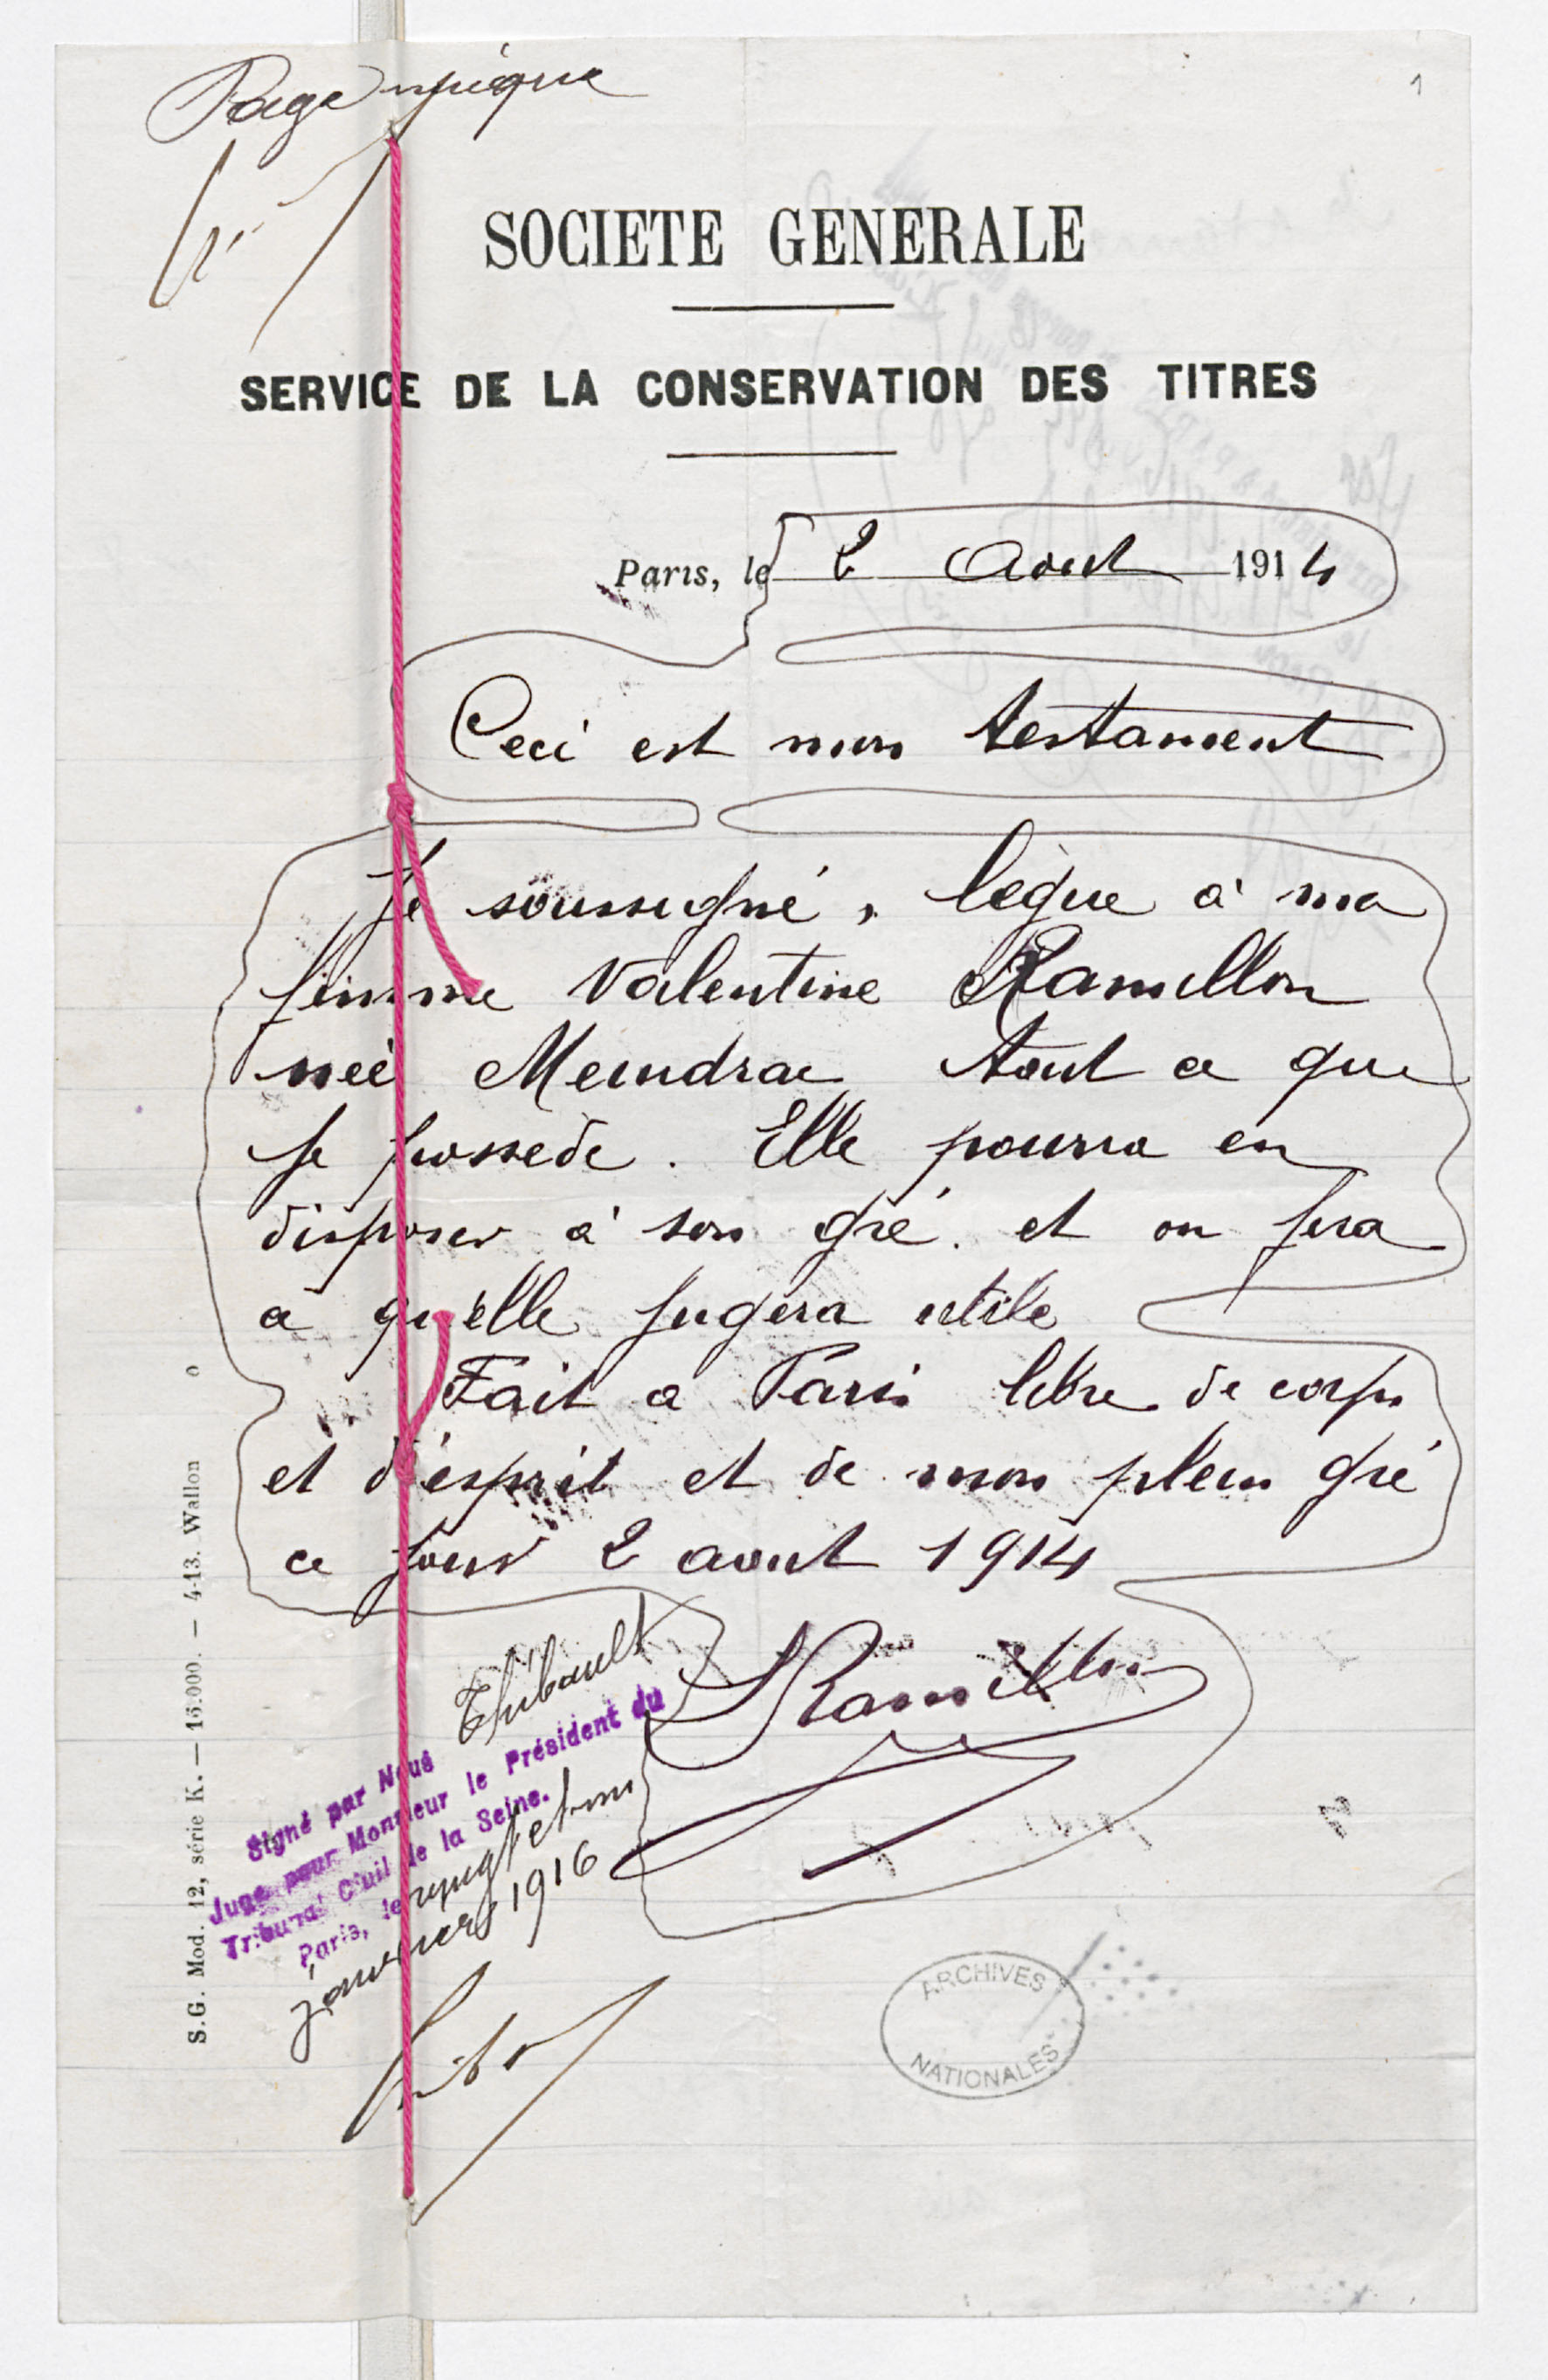 Page unique
1
SOCIETE GENERALE
SERVICE DE LA CONSERVATION DES TITRES
Paris, le 2 Aout 1914
Ceci est mon testament
Je soussigné, legue à ma
femme Valentine Ramillon
neé Meindrac tout ce que
je possede. Elle pourra en
disposer à son gré. et en fera
ce qu'elle jugera utile
Fait a Paris libre de corps
et d'esprit et de mon plein gré
ce jour 2 aout 1914
Ramillon
Signé par Nous Thibault
Juge pour Monsieur le Président du
Tribunal Civil de la Seine.
Paris, le vingt et un
janvier 1916
S.G. Mod. 12, série K. — 15.000. — 4-13. Wallon
ARCHIVES
NATIONALES